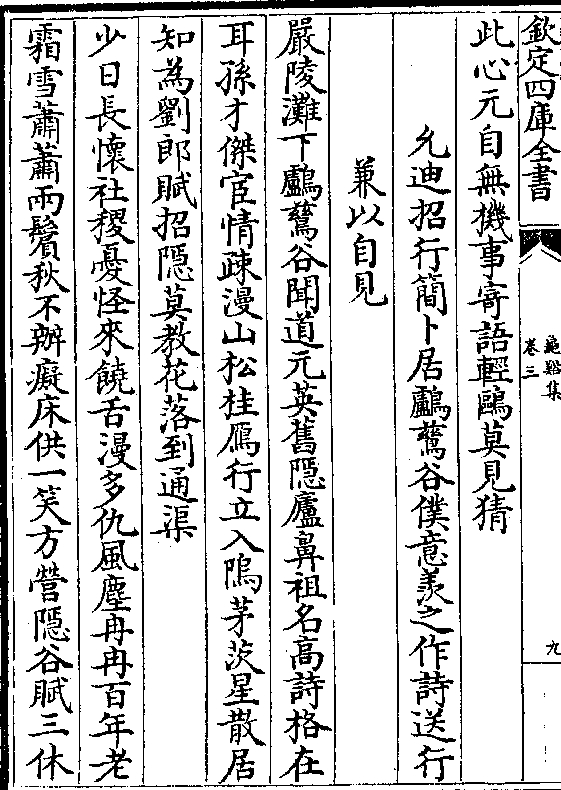 欽定四庫全書
龜谿集
卷三
九
此心元自無機事寄語輕鷗莫見猜
允迪招行簡卜居鸕鶿谷僕意羨之作詩送行
兼以自見
嚴陵灘下鸕鶿谷聞道元英舊隱廬鼻祖名高詩格在
耳孫才傑宦情疎漫山松桂鴈行立入隖茅茨星散居
知為劉郎賦招隠莫教花落到通渠
少日長懷社稷憂怪來饒舌漫多仇風塵冉冉百年老
霜雪蕭蕭兩鬢秋不辦癡床供一笑方營隠谷賦三休